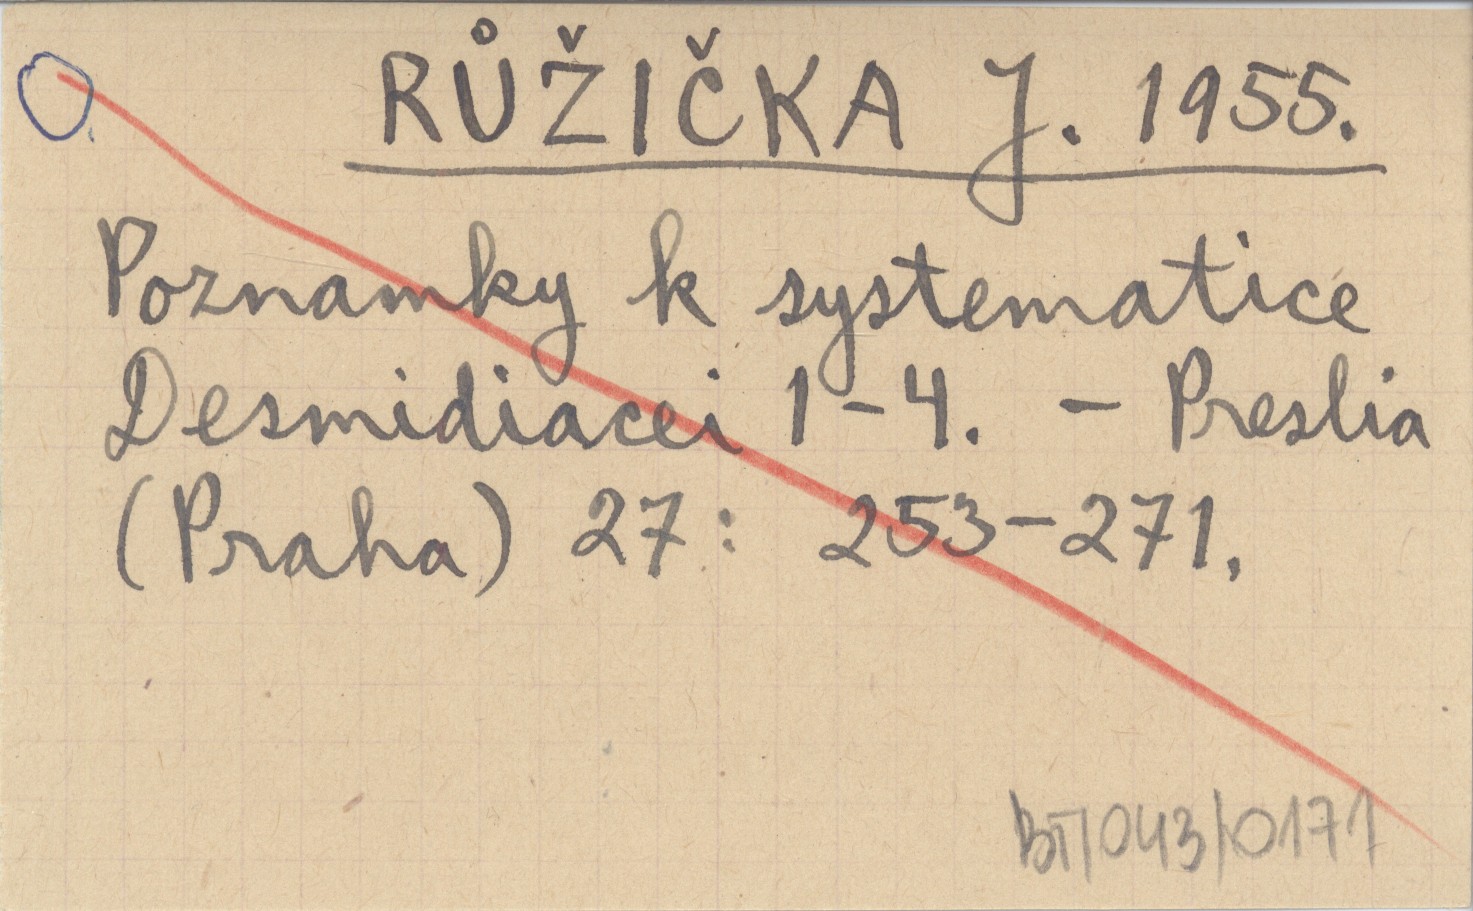 RŮŽIČKA J. 1955.
Poznamky k systematice
Desmidiacei 1-4. - Preslia
(Praha) 27: 253-271.
BT/043/0171